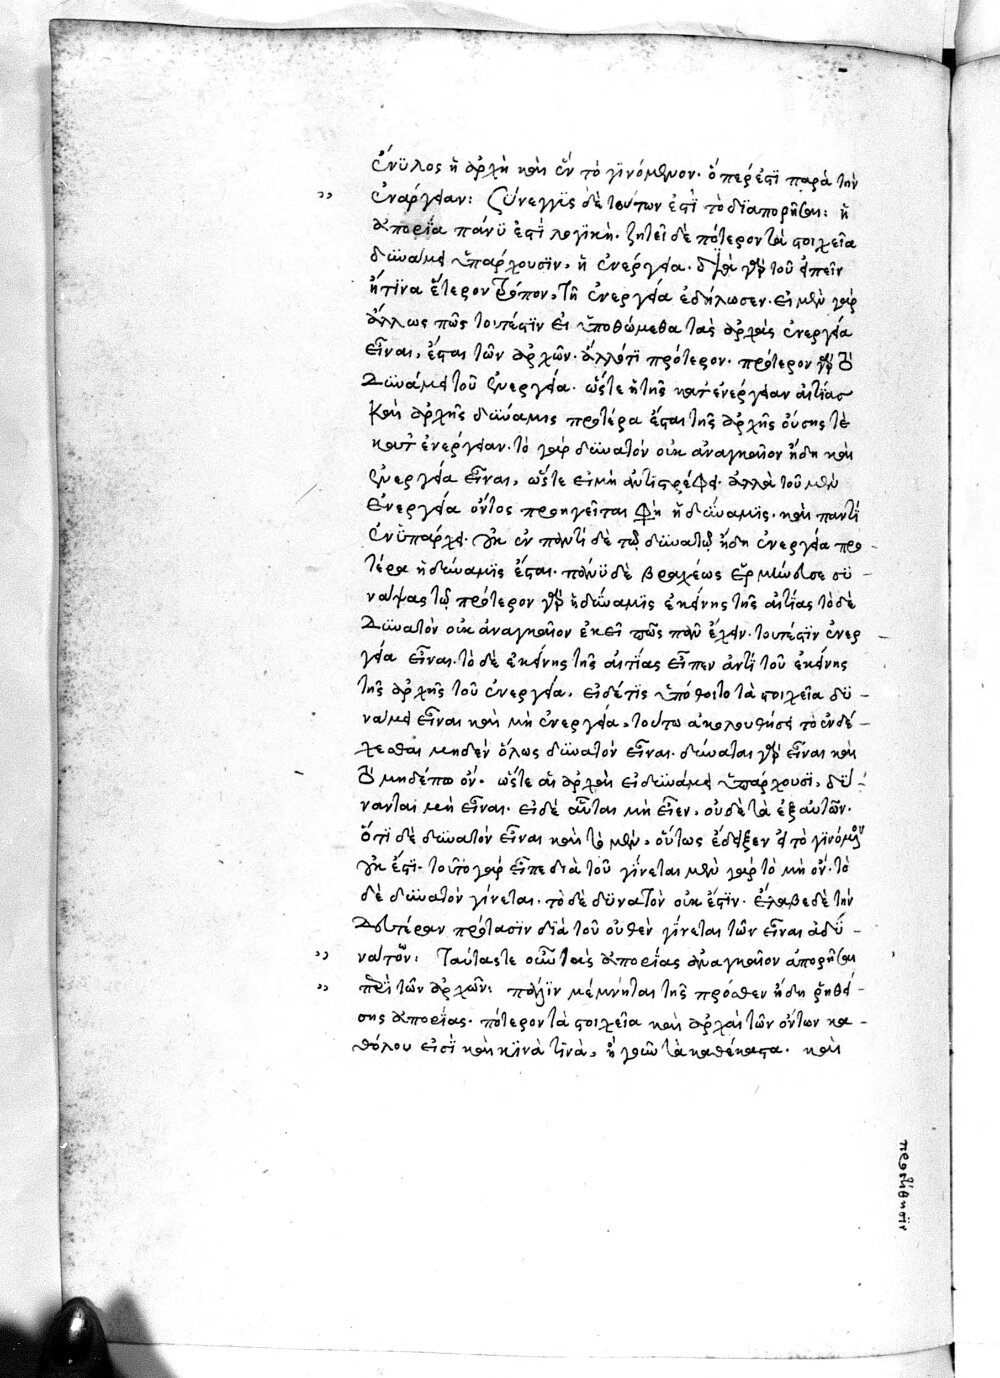 ἔνϋλος ἡ ἀρχὴ καὶ ἓν τὸ γϊνόμενον· ὅπερ ἐστὶ παρὰ τὴν
ἐνάργειαν: Σύνεγγϋς δὲ τούτων ἐστὶ τὸ διαπορῆσαι: ἡ
ἀπορία πάνϋ ἐστὶ λογϊκὴ· ζητεῖ δὲ πότερον τὰ στοιχεῖα
δυνάμει ὑπάρχουσϊν, ἢ ἐνεργεία· διὰ γὰρ τοῦ εἰπεῖν
ἤ τϊνα ἕτερον τρόπον, τῆ ἐνεργεία ἐδήλωσεν· εἰ μὲν γὰρ
ἄλλως πῶς τουτέστϊν εἰ ὑποθώμεθα τὰς ἀρχὰς ἐνεργεία
εἶναι, ἔσται τῶν ἀρχῶν ἄλλό τϊ πρότερον· πρότερον γὰρ τὸ
δυνάμει τοῦ ἐνεργεία· ὥστε ἡ τῆς κατ' ἐνέργειαν αἰτίας
καὶ ἀρχῆς δύναμις προτέρα ἔσται τῆς ἀρχῆς οὔσης τε
κατ' ἐνέργειαν· τὸ γὰρ δυνατὸν οὐκ ἀναγκαῖον ἤδη καὶ
ἐνεργεία εἶναι, ὥστε εἰ μὴ ἀντιστρέφει· ἀλλὰ τοῦ μὲν
ἐνεργεία ὄντος προηγεῖται ἡ δύναμϊς· καὶ παντὶ
ἐνϋπάρχει· οὐκ ἐν παντὶ δὲ τῷ δυνατῷ ἤδη ἐνεργεία προ-
τέρα ἡ δύναμϊς ἔσται· πάνϋ δὲ βραχέως ἑρμήνευσε σϋ-
νάψας τῷ πρότερον γὰρ ἡ δύναμϊς ἐκείνης τῆς αἰτίας τὸ δὲ
δυνατὸν οὐκ ἀναγκαῖον ἐκεῖ πῶς πᾶν ἔχειν· τουτέστϊν ἐνερ
γεία εἶναι· τὸ δὲ ἐκείνης τῆς αἰτίας εἶπεν ἀντὶ τοῦ ἐκείνης
τῆς ἀρχῆς τοῦ ἐνεργεία, εἰ δέ τϊς ὑπόθοιτο τὰ στοιχεῖα δϋ-
νάμει εἶναι καὶ μὴ ἐνεργεία, τούτω ἀκολουθήσει τὸ ἐνδέ-
χεσθαι μηδὲν ὅλως δυνατὸν εἶναι· δύναται γὰρ εἶναι καὶ
τὸ μηδέπω ὄν· ὥστε αἱ ἀρχαὶ εἰ δυνάμει ὑπάρχουσϊ, δύ-
νανται μὴ εἶναι· εἰ δὲ αὗται μὴ εἶεν, οὐδὲ τὰ ἐξ αὐτῶν·
ὅτϊ δὲ δυνατὸν εἶναι καὶ τὸ μὴ ὄν, οὕτως ἔδειξεν εἰ τὸ γϊνόμενον
οὐκ ἔστϊ· τοῦτο γὰρ εἶπε διὰ τοῦ γίνεται μὲν γὰρ τὸ μὴ ὄν· τὸ
δὲ δυνατὸν γίνεται· τὸ δὲ δϋνατὸν οὐκ ἔστϊν· ἔλαβε δὲ τὴν
δευτέραν πρότασϊν διὰ τοῦ οὐθὲν γίνεται τῶν εἶναι ἀδϋ-
νάτων: Ταύτας τε οὖν τὰς ἀπορίας ἀναγκαῖον ἀπορῆσαι
περὶ τῶν ἀρχῶν: πάλϊν μέμνηται τῆς πρόσθεν ἤδη ῥηθεί-
σης ἀπορίας· πότερον τὰ στοιχεῖα καὶ ἀρχαὶ τῶν ὄντων κα-
θόλου εἰσῒ καὶ κοινά τϊνὰ, ἢ τὰ καθέκαστα· καὶ